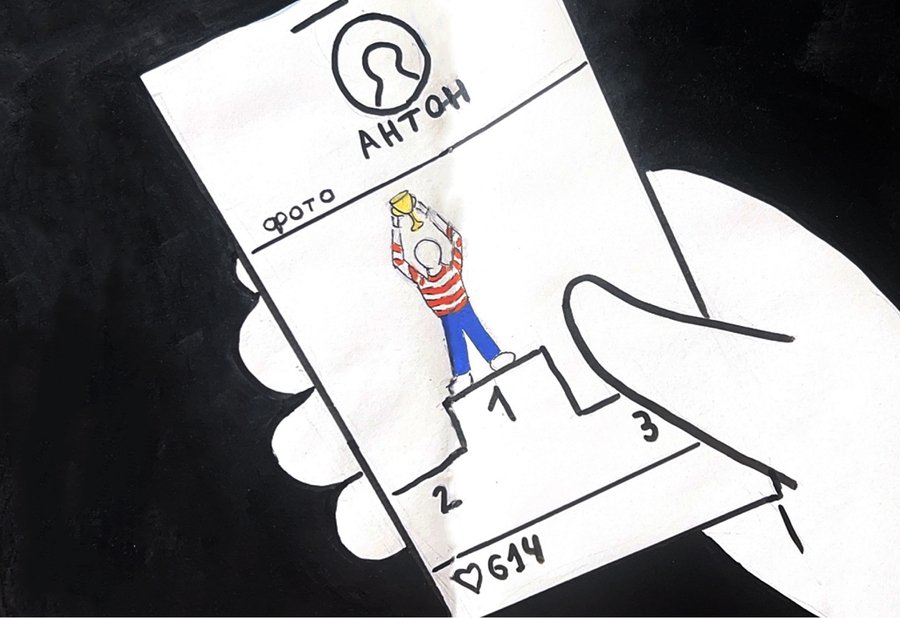 АНТОН
фото
1
2
3
♡614